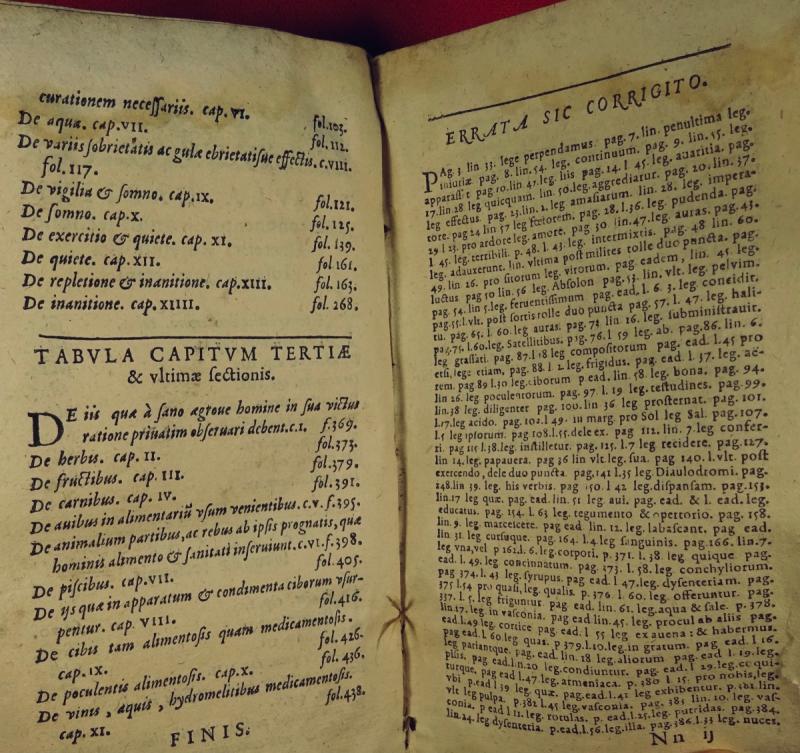 curationem necessariis. cap. VI. fol. 103.
De aqua. cap. VII. fol. 112.
De variis sobrietatis ac gulæ ebrietatisue effectis. c. VIII.
fol. 117.
De vigilia & somno. cap. IX. fol. 121.
De somno. cap. X. fol. 125.
De exercitio & quiete. cap. XI. fol. 139.
De quiete. cap. XII. fol. 161.
De repletione & inanitione. cap. XIII. fol. 163.
De inanitione. cap. XIIII. fol. 268.
TABVLA CAPITVM TERTIÆ
& vltimæ sectionis.
DE iis quæ à sano ægroue homine in sua victus
ratione priuatim obseruari debent. c. I. f. 369.
De herbis. cap. II. fol. 373.
De fructibus. cap. III. fol. 379.
De carnibus. cap. IV. fol. 391.
De auibus in alimentariũ vsum venientibus. c. V. f. 395.
De animalium partibus, ac rebus ab ipsis prognatis, quæ
hominis alimento & sanitati inseruiunt. c. VI. f. 398.
De piscibus. cap. VII. fol. 405.
De ijs quæ in apparatum & condimenta ciborum vsur-
pentur. cap. VIII. fol. 416.
De cibis tam alimentosis quam medicamentosis.
cap. IX. fol. 426.
De poculentis alimentosis. cap. X. fol. 436.
De vinis, aquis, hydromelitibus medicamentosis.
cap. XI. fol. 438.
FINIS.
ERRATA SIC CORRIGITO.
PAg. 3 lin 33. lege perpendamus pag. 7. lin. penultima leg.
iniuriæ pag. 8. lin. 54. leg. continuum. pag. 9. lin. 15. leg.
apparasset pag 10. lin. 47. leg. his pag. 14. l 45. leg. auaritia. pag.
17. lin. 28 leg quicquam. lin. 50. leg. aggrediatur. pag. 20. lin. 37.
leg effectus. pag. 23. lin. 2. leg amasiarum. lin. 28. leg. impera-
tore. pag 24 lin 57 leg fœtorem. pag. 28. l. 36. leg. pudenda. pag.
29 l 23. pro ardore leg. amore. pag 30 lin. 47. leg. auras. pag. 43.
l. 45. leg. terribili. p. 48. l. 43. leg. intermixtis. pag. 48 lin. 60.
leg. adauxerunt. lin. vltima post milites tolle duo puncta. pag.
49. lin 26. pro sitorum leg. virorum. pag eadem, lin. 45. leg.
luctus pag 50 lin 56 leg. Absolon pag. 53. lin. vlt. leg. peluim.
pag. 54. lin 5. leg. feruentissimum pag. ead l. 6. 3. leg. considit.
pag. 55. l. vlt. post sortis tolle duo puncta pag. 57. l. 47. leg. hali-
tu. pag. 65. l. 60. leg auras. pag. 71 lin 16. leg. subministrauit.
pag. 75. l. 60. leg. Satellitibus. pag. 76. l 59 leg. ab. pag. 86. lin. 6.
leg grassati. pag. 87. l. 18 leg compositorum pag. ead l. 45 pro
etsi, lege etiam, pag. 88. l 2 leg. frigidus. pag. ead l. 37. leg. ae-
rem. pag 89 l. 30 leg. ciborum p ead. lin. 58. leg. bona. pag. 94.
lin 26. leg poculentorum. pag. 97. l. 19 leg. testudines. pag. 99.
lin. 38 leg. diligenter pag. 100. lin 36 leg. prosternat. pag. 101.
l. 17. leg acido. pag. 102. l 49. in marg. pro Sol leg Sal. pag. 107.
l. 5 leg ipsorum. pag 108. l. 55. dele ex. pag 112. lin. 7. leg confer-
ri. pag 115 l. 38. leg. instilletur. pag. 125. l. 7 leg recidere. pag. 127.
lin 14. leg. papauera. pag 36 lin vlt. leg. sua. pag 140. l. vlt. post
exercendo, dele duo puncta. pag. 141 l. 35 leg. Diaulodromi. pag.
148. lin 39. leg. his verbis. pag 150. l 42 leg. dispansam. pag. 153.
lin. 17 leg quæ. pag. ead. lin. 51 leg. aui. pag. ead. & l. ead. leg.
educatus. pag. 154. l 63 leg. tegumento & opertorio. pag. 158.
lin. 9. leg marcescere. pag ead lin. 12. leg. labascant. pag ead.
lin. 31 leg cursuque. pag. 164. l. 4. leg sanguinis. pag. 166. lin. 7.
leg vna, vel p 162. l. 6. leg. corpori. p. 371. l. 38 leg quique pag.
ead l. 49. leg concinnatum. pag. 373. l. 58. leg. conchyliorum.
pag 374. l. 43 leg. syrupus. pag ead l 47. leg. dysenteriam. pag.
375 l. 54 pro quasi, leg. qualis. p. 376. l 60. leg. offeruntur. pag.
337. l. 5. leg friguntur. pag ead. lin. 61. leg. aqua & sale. p. 378.
lin. 17. leg in vasconia. pag ead lin. 45. leg. procul ab aliis pag.
ead. l. 49 leg. cortice pag. ead l 55 leg ex auena: & habemus.
pag ead l. 60 leg quas. p 379. l. 10. leg. in gratum. pag ead l 16.
leg pariantque. pag. ead. lin. 18 leg. aliorum pag. ead l 19. leg.
pluis, pag ead. l. lin. 20 leg. condiuntur. pag. ead l 29. leg. ac qui-
turque, pag ead l. 47. leg. armeniaca. p. 380 l 15. pro nobis, leg.
vbi p. ead l 39 leg. quæ. pag. ead. l. 41 leg exhibentur p. 381. lin.
vlt leg pulpa. p. 382. l. 45 leg. vasconia. pag. 383 lin. 10. leg. vas-
conia. p ead l 11. leg. rotulas. p ead. l. 25. leg. putridas. pag. 384.
lin. 24. leg dysenteria. p ead. l. 56. leg. illa. pag. 386. l. 33 leg. nuces.
Nn ij